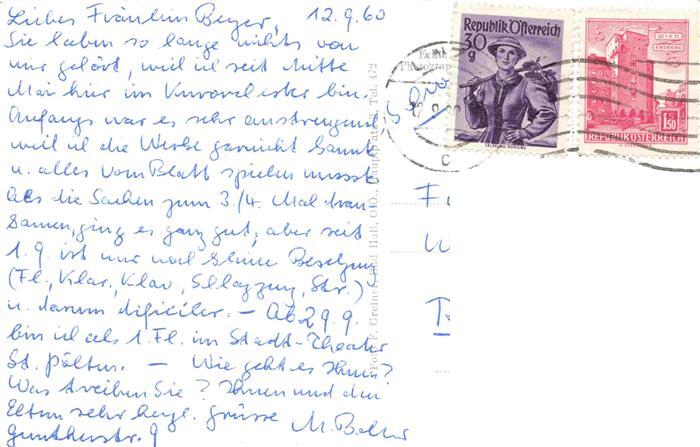 Liebes Fräulein Beyer, 12.9.60
Sie haben so lange nichts von
mir gehört, weil ich seit Mitte
Mai hier im Kurorchester bin.
Anfangs war es sehr anstrengend
weil ich die Werke garnicht kannte
u. alles vom Blatt spielen musste
Als die Sachen zum 3./4. Mal dran
kamen, ging es ganz gut, aber seit
1.9. ist nur noch kleine Besetzung
(Fl., Klar., Klav., Schlagzeug, Str.)
u. darum dificiler. - Ab 29.9.
bin ich als 1. Fl. im Stadt-Theater
St. Pölten. - Wie geht es Ihnen?
Was treiben Sie? Ihnen und den
Eltern sehr herzl. Grüsse
Guntherstr. 9
Republik Österreich
30
g
WIEN
ERDBERG
1.50
REPUBLIK ÖSTERREICH
Foto F. Greiner, Bad Hall, O.Ö., Tel. 472
Echte